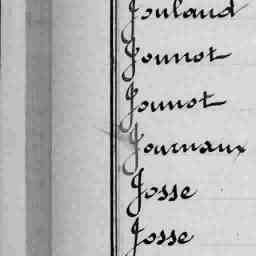 Jouland
Jounot
Jounot
Journaux
Josse
Josse